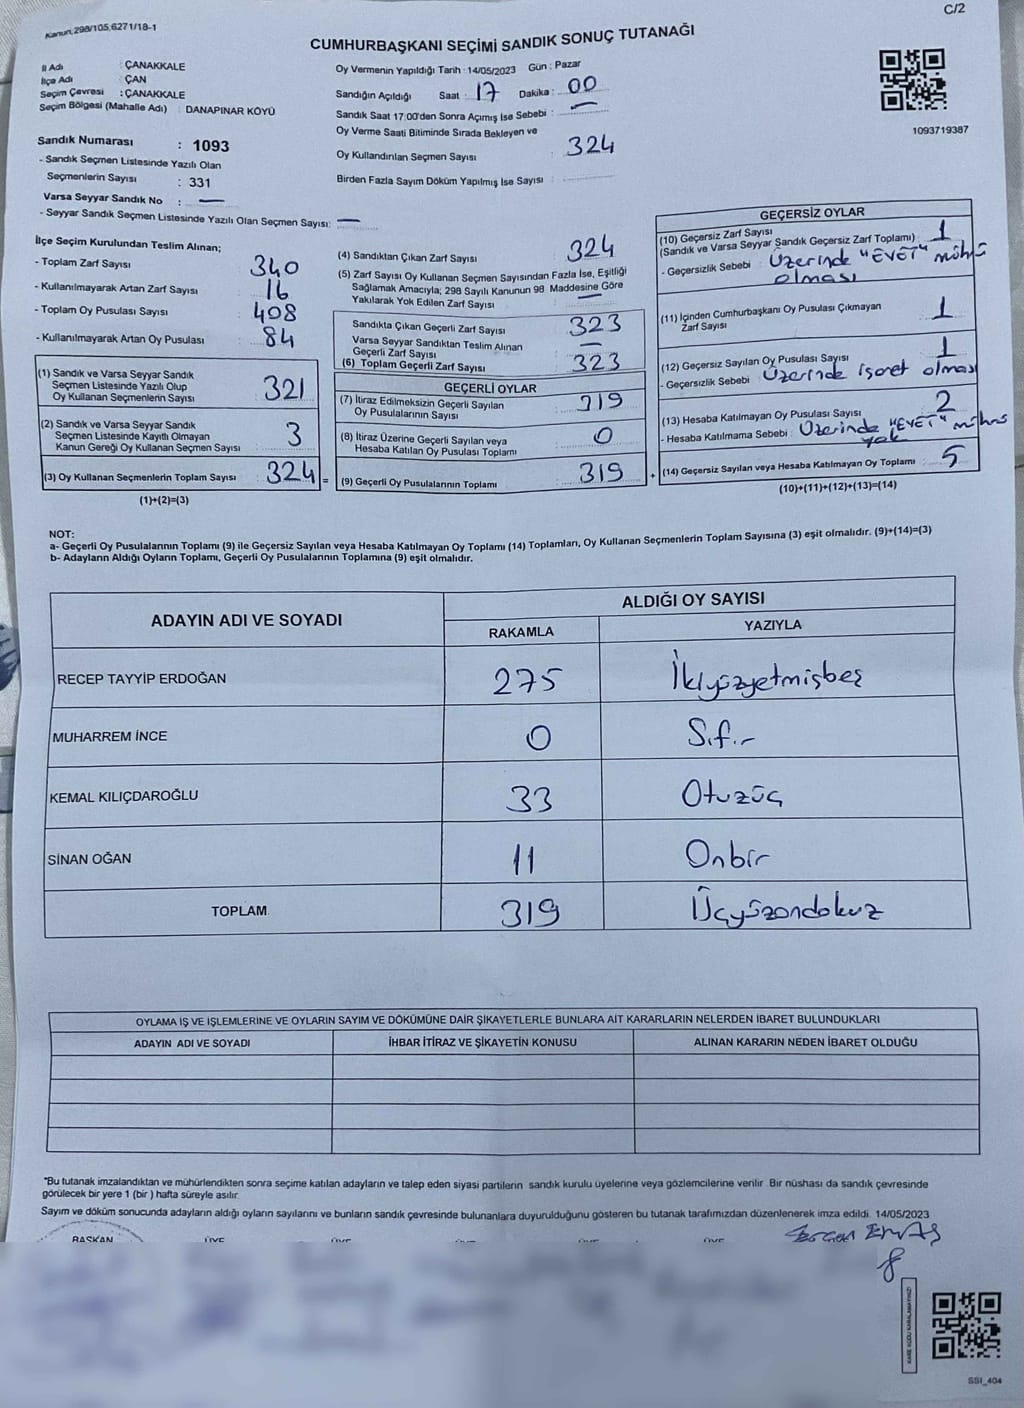 Kanun, 298/105,6271/18-1
C/2
CUMHURBAŞKANI SEÇİMİ SANDIK SONUÇ TUTANAĞI
İl Adı : ÇANAKKALE
İlçe Adı : ÇAN
Seçim Çevresi : ÇANAKKALE
Seçim Bölgesi (Mahalle Adı) : DANAPINAR KÖYÜ
Oy Vermenin Yapıldığı Tarih : 14/05/2023 Gün : Pazar
Sandığın Açıldığı Saat : 17 Dakika : 00
Sandık Saat 17:00'den Sonra Açımış İse Sebebi : —
Oy Verme Saati Bitiminde Sırada Bekleyen ve
Oy Kullandırılan Seçmen Sayısı : 324
Birden Fazla Sayım Döküm Yapılmış İse Sayısı :
1093719387
Sandık Numarası : 1093
- Sandık Seçmen Listesinde Yazılı Olan
Seçmenlerin Sayısı : 331
Varsa Seyyar Sandık No : —
- Seyyar Sandık Seçmen Listesinde Yazılı Olan Seçmen Sayısı: —
İlçe Seçim Kurulundan Teslim Alınan;
- Toplam Zarf Sayısı 340
- Kullanılmayarak Artan Zarf Sayısı 16
- Toplam Oy Pusulası Sayısı 408
- Kullanılmayarak Artan Oy Pusulası 84
(1) Sandık ve Varsa Seyyar Sandık
Seçmen Listesinde Yazılı Olup
Oy Kullanan Seçmenlerin Sayısı 321
(2) Sandık ve Varsa Seyyar Sandık
Seçmen Listesinde Kayıtlı Olmayan
Kanun Gereği Oy Kullanan Seçmen Sayısı 3
(3) Oy Kullanan Seçmenlerin Toplam Sayısı 324 =
(1)+(2)=(3)
(4) Sandıktan Çıkan Zarf Sayısı 324
(5) Zarf Sayısı Oy Kullanan Seçmen Sayısından Fazla İse, Eşitliği
Sağlamak Amacıyla; 298 Sayılı Kanunun 98 Maddesine Göre
Yakılarak Yok Edilen Zarf Sayısı —
Sandıkta Çıkan Geçerli Zarf Sayısı 323
Varsa Seyyar Sandıktan Teslim Alınan
Geçerli Zarf Sayısı —
(6) Toplam Geçerli Zarf Sayısı 323
GEÇERLİ OYLAR
(7) İtiraz Edilmeksizin Geçerli Sayılan
Oy Pusulalarının Sayısı 319
(8) İtiraz Üzerine Geçerli Sayılan veya
Hesaba Katılan Oy Pusulası Toplamı 0
(9) Geçerli Oy Pusulalarının Toplamı 319 +
GEÇERSİZ OYLAR
(10) Geçersiz Zarf Sayısı
(Sandık ve Varsa Seyyar Sandık Geçersiz Zarf Toplamı) : 1
- Geçersizlik Sebebi : Üzerinde "EVET" mührü
olması
(11) İçinden Cumhurbaşkanı Oy Pusulası Çıkmayan
Zarf Sayısı 1
(12) Geçersiz Sayılan Oy Pusulası Sayısı 1
- Geçersizlik Sebebi : Üzerinde işaret olması
(13) Hesaba Katılmayan Oy Pusulası Sayısı 2
- Hesaba Katılmama Sebebi : Üzerinde "EVET" mührü
yok
(14) Geçersiz Sayılan veya Hesaba Katılmayan Oy Toplamı : 5
(10)+(11)+(12)+(13)=(14)
NOT:
a- Geçerli Oy Pusulalarının Toplamı (9) ile Geçersiz Sayılan veya Hesaba Katılmayan Oy Toplamı (14) Toplamları, Oy Kullanan Seçmenlerin Toplam Sayısına (3) eşit olmalıdır. (9)+(14)=(3)
b- Adayların Aldığı Oyların Toplamı, Geçerli Oy Pusulalarının Toplamına (9) eşit olmalıdır.
ADAYIN ADI VE SOYADI
ALDIĞI OY SAYISI
RAKAMLA YAZIYLA
RECEP TAYYİP ERDOĞAN 275 İkiyüzyetmişbeş
MUHARREM İNCE 0 Sıfır
KEMAL KILIÇDAROĞLU 33 Otuzüç
SİNAN OĞAN 11 Onbir
TOPLAM 319 Üçyüzondokuz
OYLAMA İŞ VE İŞLEMLERİNE VE OYLARIN SAYIM VE DÖKÜMÜNE DAİR ŞİKAYETLERLE BUNLARA AİT KARARLARIN NELERDEN İBARET BULUNDUKLARI
ADAYIN ADI VE SOYADI İHBAR İTİRAZ VE ŞİKAYETİN KONUSU ALINAN KARARIN NEDEN İBARET OLDUĞU
"Bu tutanak imzalandıktan ve mühürlendikten sonra seçime katılan adayların ve talep eden siyasi partilerin sandık kurulu üyelerine veya gözlemcilerine verilir. Bir nüshası da sandık çevresinde
görülecek bir yere 1 (bir ) hafta süreyle asılır.
Sayım ve döküm sonucunda adayların aldığı oyların sayılarını ve bunların sandık çevresinde bulunanlara duyurulduğunu gösteren bu tutanak tarafımızdan düzenlenerek imza edildi. 14/05/2023
BAŞKAN ÜYE ÜYE ÜYE ÜYE ÜYE
KARE KODU KARALAMAYINIZ!
SSI_404